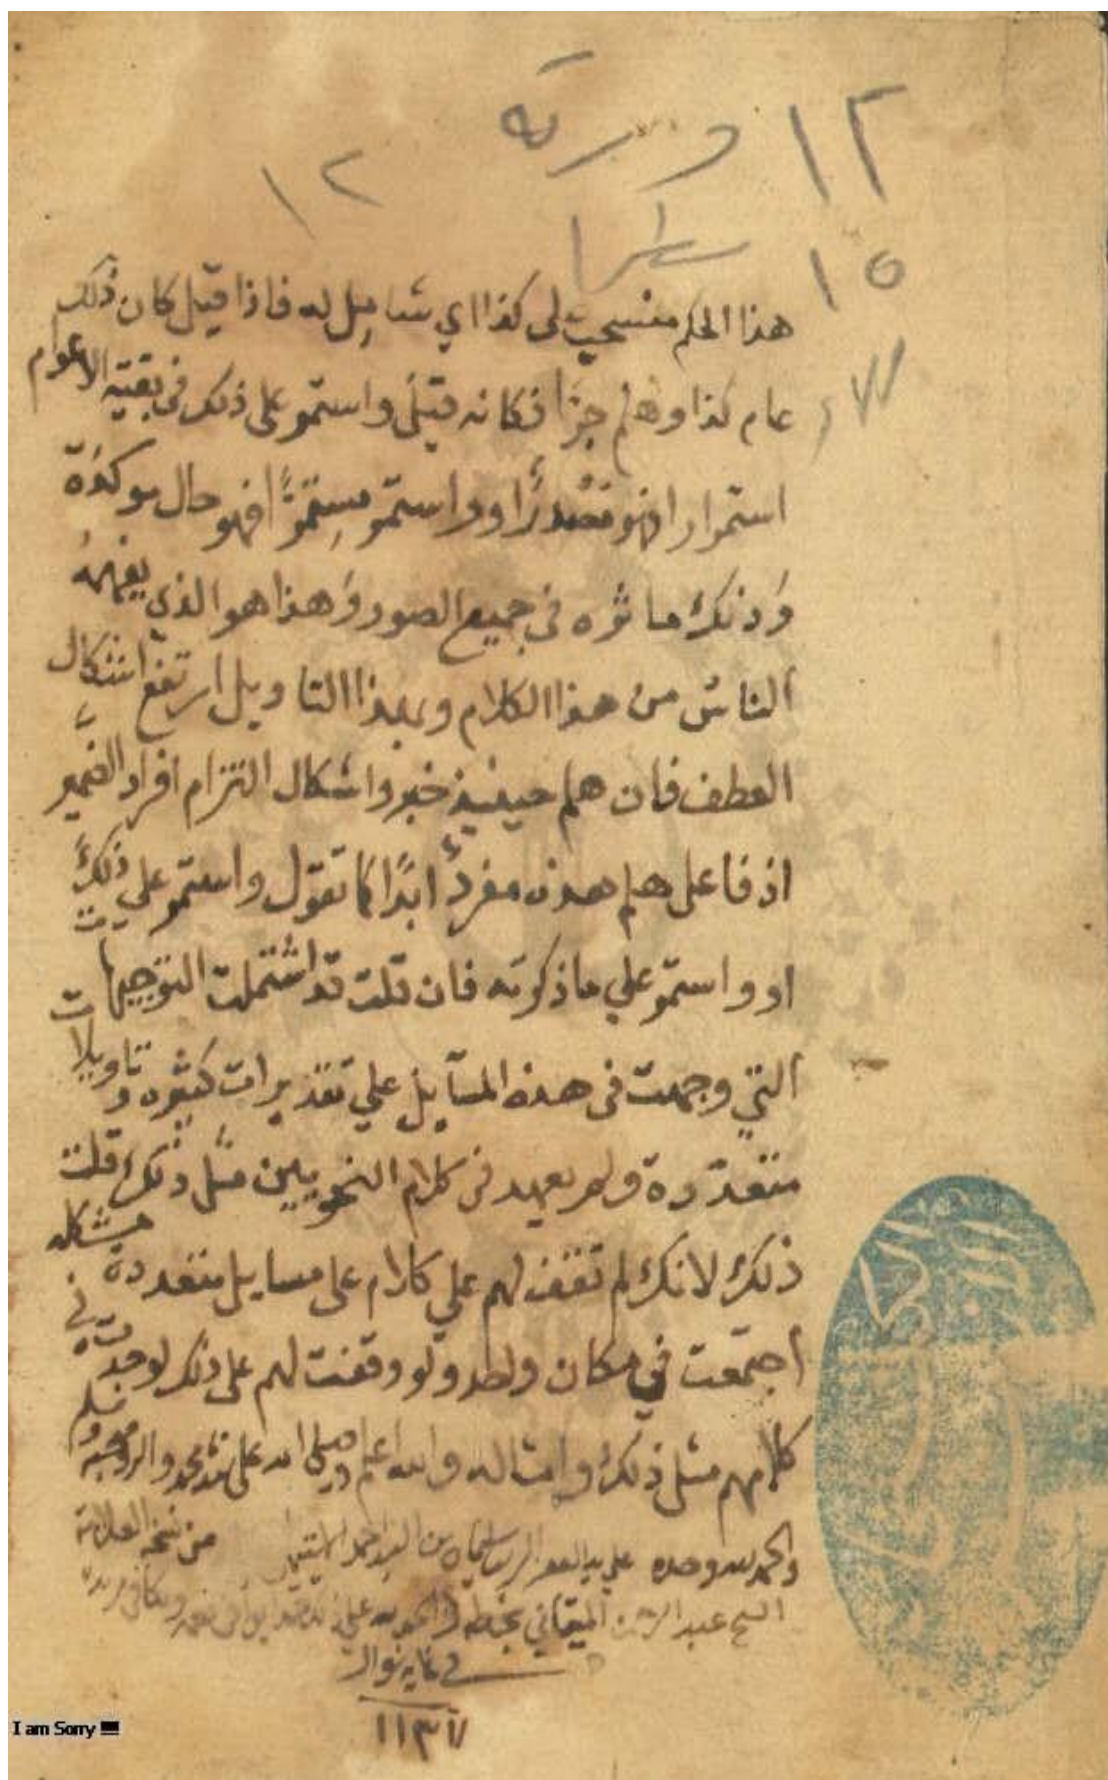 ١٢ ورقة
١٢
سطرا
١٥
هذا الحكم منسحب لى كذا اي شامل له فاذا قيل كان ذلك
عام كذا وهلم جرا فكانه قيل واستمر على ذلك في بقية الاعوام
استمرارا فهو مصدر او واستمر مستمرا فهو حال موكدة
وذلك ماثره في جميع الصور وهذا هو الذي يفهمه
الناس من هذا الكلام وبهذا التاويل ارتفع اشكال
العطف فان هلم حينيذ خبر واشكال التزام افراد الضمير
اذ فاعل هلم هذه مفرد ابدا كما تقول واستمر على ذلك
او واستمر علي ما ذكرته فان قلت قد اشتملت التوجيهات
التي وجهت في هذه المسايل علي تقديرات كثيره وتاويلات
متعددة ولم يعهد في كلام النحويين مثل ذلك قلت
ذلك لانك لم تقف لهم علي كلام على مسايل متعددة مشكله
اجتمعت في مكان واحد ولو وقفت لهم على ذلك لوجدت في
كلامهم مثل ذلك وامثاله والله اعلم وصلى الله على محمد واله وصحبه وسلم
والحمد لله وحده علي يد سليمان بن احمد من نسخة العلامة
الشيخ عبد الرحمن الميقاتي بخطه
١١٣٧
I am Sorry !!!